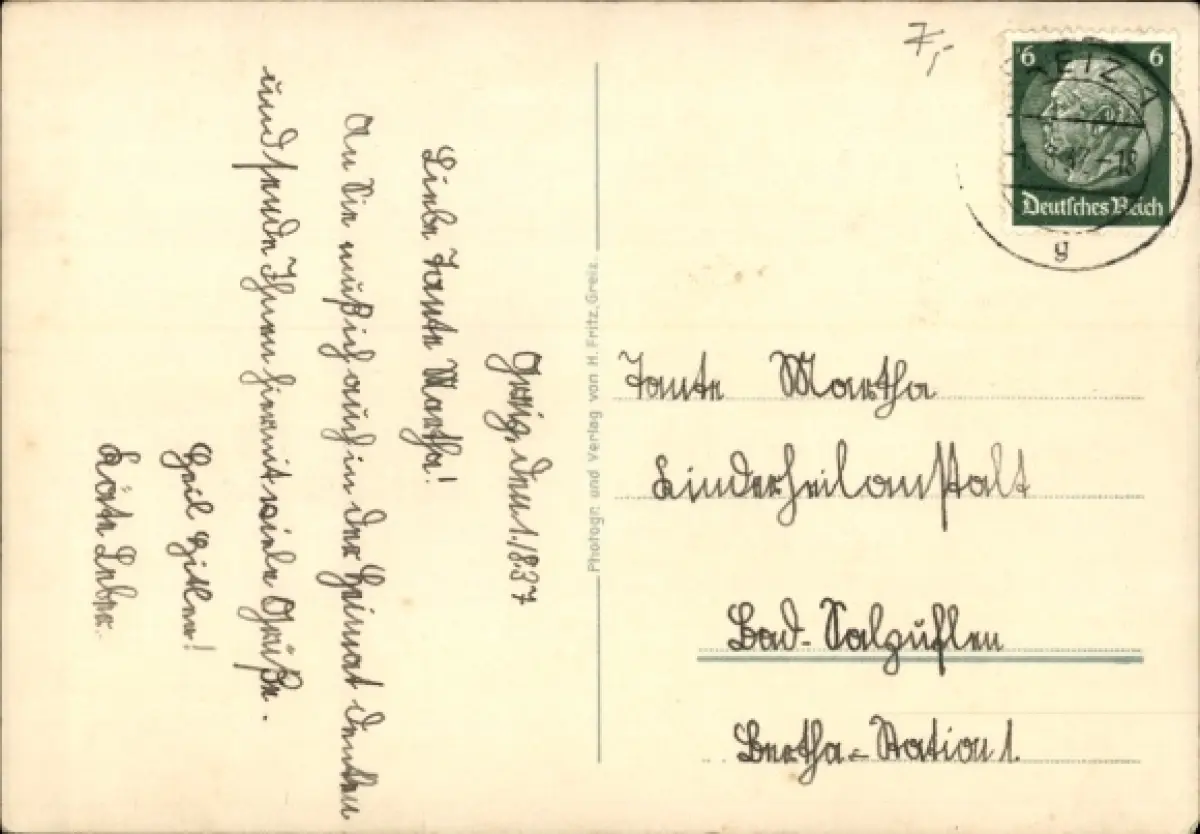 Greiz, den 1./8.37
Liebe Tante Martha!
An Sie muß ich auch in der Heimat denken
und sende Ihnen hiermit viele Grüße.
Heil Hitler!
Käte
Photogr. und Verlag von H. Fritz, Greiz.
7,-
6 6
Deutsches Reich
g
Tante Martha
Kinderheilanstalt
Bad-Salzuflen
Bertha-Station 1.